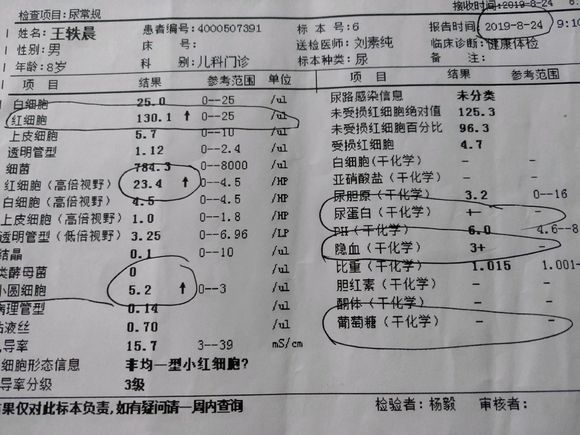 检查项目:尿常规
接收时间:2019-8-24
姓名:王轶晨 患者编号:4000507391 标本号:6 报告时间:2019-8-24 9:10
性别:男 床号: 送检医师:刘素纯 临床诊断:健康体检
年龄:8岁 科别:儿科门诊 标本种类:尿 备注:
项目 结果 参考范围 单位 项目 结果 参考范围
白细胞 25.0 0--25 /ul 尿路感染信息 未分类
红细胞 130.1 ↑ 0--25 /ul 未受损红细胞绝对值 125.3
上皮细胞 5.7 0--10 /ul 未受损红细胞百分比 96.3
透明管型 1.12 0--2.4 /ul 受损红细胞 4.7
细菌 784.3 0--8000 /ul 白细胞(干化学) - -
红细胞(高倍视野) 23.4 ↑ 0--4.5 /HP 亚硝酸盐(干化学) - -
白细胞(高倍视野) 4.5 0--4.5 /HP 尿胆原(干化学) 3.2 0--16
上皮细胞(高倍视野) 1.0 0--1.8 /HP 尿蛋白(干化学) +- -
透明管型(低倍视野) 3.25 0--6.96 /LP PH(干化学) 6.0 4.6--8
结晶 0.1 0--10 /ul 隐血(干化学) 3+ -
类酵母菌 0 /ul 比重(干化学) 1.015 1.001-
小圆细胞 5.2 ↑ 0--3 /ul 胆红素(干化学) - -
病理管型 0.14 /ul 酮体(干化学) - -
粘液丝 0.70 /ul 葡萄糖(干化学) - -
导率 15.7 3--39 mS/cm
细胞形态信息 非均一型小红细胞?
导率分级 3级
果仅对此标本负责,如有疑问请一周内查询 检验者:杨毅 审核者: